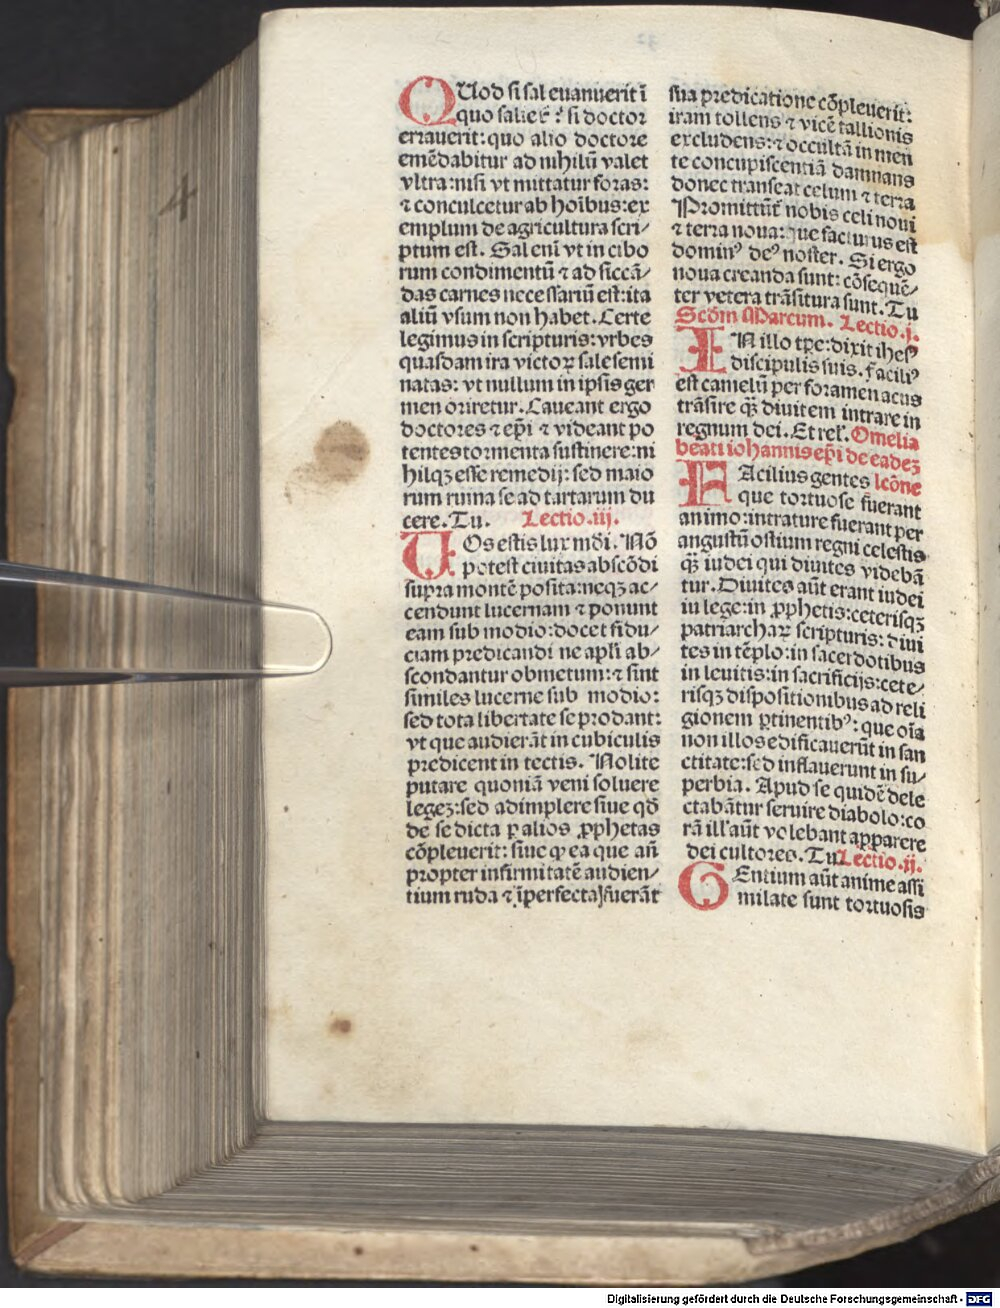 4
QUod si sal euanuerit ī
quo salieť: ē si doctor
errauerit: quo alio doctore
emēdabitur ad nihilū valet
vltra: nisi vt mittatur foras:
⁊ conculcetur ab hoībus: ex
emplum de agricultura scri⸗
ptum est. Sal enī vt in cibo
rum condimentū ⁊ ad siccā⸗
das carnes necessariū est: ita
aliū vsum non habet. Certe
legimus in scripturis: vrbes
quasdam ira victoꝝ sale semi
natas: vt nullum in ipsis ger
men oriretur. Caueant ergo
doctores ⁊ epī ⁊ videant po
tentes tormenta sustinere: ni
hilqꝫ esse remedij: sed maio
rum ruina se ad tartarum du
cere. Tu. Lectio. iij.
UOs estis lux mdī. Nō
potest ciuitas abscōdi
supra montē posita: neqꝫ ac⸗
cendunt lucernam ⁊ ponunt
eam sub modio: docet fidu⸗
ciam predicandi ne apłi ab⸗
scondantur ob metum: ⁊ sint
similes lucerne sub modio:
sed tota libertate se prodant:
vt que audierāt in cubiculis
predicent in tectis. Nolite
putare quoniā veni soluere
legeꝫ: sed adimplere siue qď
de se dicta ꝑ alios ꝓphetas
cōpleuerit: siue ꝙ ea que añ
propter infirmitatē audien⸗
tium ruda ⁊ īperfecta fuerāt
sua predicatione cōpleuerit:
iram tollens ⁊ vicē tallionis
excludens: ⁊ occultā in men
te concupiscentiā damnans
donec transeat celum ⁊ terra
Promittūt nobis celi noui
⁊ terra noua: que facturus est
dominꝰ deꝰ noster. Si ergo
noua creanda sunt: cōsequē⸗
ter vetera trāsitura sunt. Tu
Scďm Marcum. Lectio. j.
IN illo tꝑe: dixit ihesꝰ
discipulis suis. Faciliꝰ
est camelū per foramen acus
trāsire qꝫ̄ diuitem intrare in
regnum dei. Et reł. Omelia
beati iohannis epī de eadeꝫ
FAcilius gentes lcōne
que tortuose fuerant
animo: intrature fuerant per
angustū ostium regni celestis
qꝫ̄ iudei qui diuites videbā
tur. Diuites aūt erant iudei
in lege: in ꝓphetis: ceterisqꝫ
patriarchaꝝ scripturis: diui
tes in tēplo: in sacerdotibus
in leuitis: in sacrificijs: cete⸗
risqꝫ dispositionibus ad reli
gionem ꝑtinentibꝰ: que oīa
non illos edificauerūt in san
ctitate: sed inflauerunt in su⸗
perbia. Apud se quidē dele
ctabātur seruire diabolo: co
rā ill' aūt volebant apparere
dei cultores. Tu. Lectio. ij.
GEntium aūt anime assi
milate sunt tortuosis
Digitalisierung gefördert durch die Deutsche Forschungsgemeinschaft - DFG